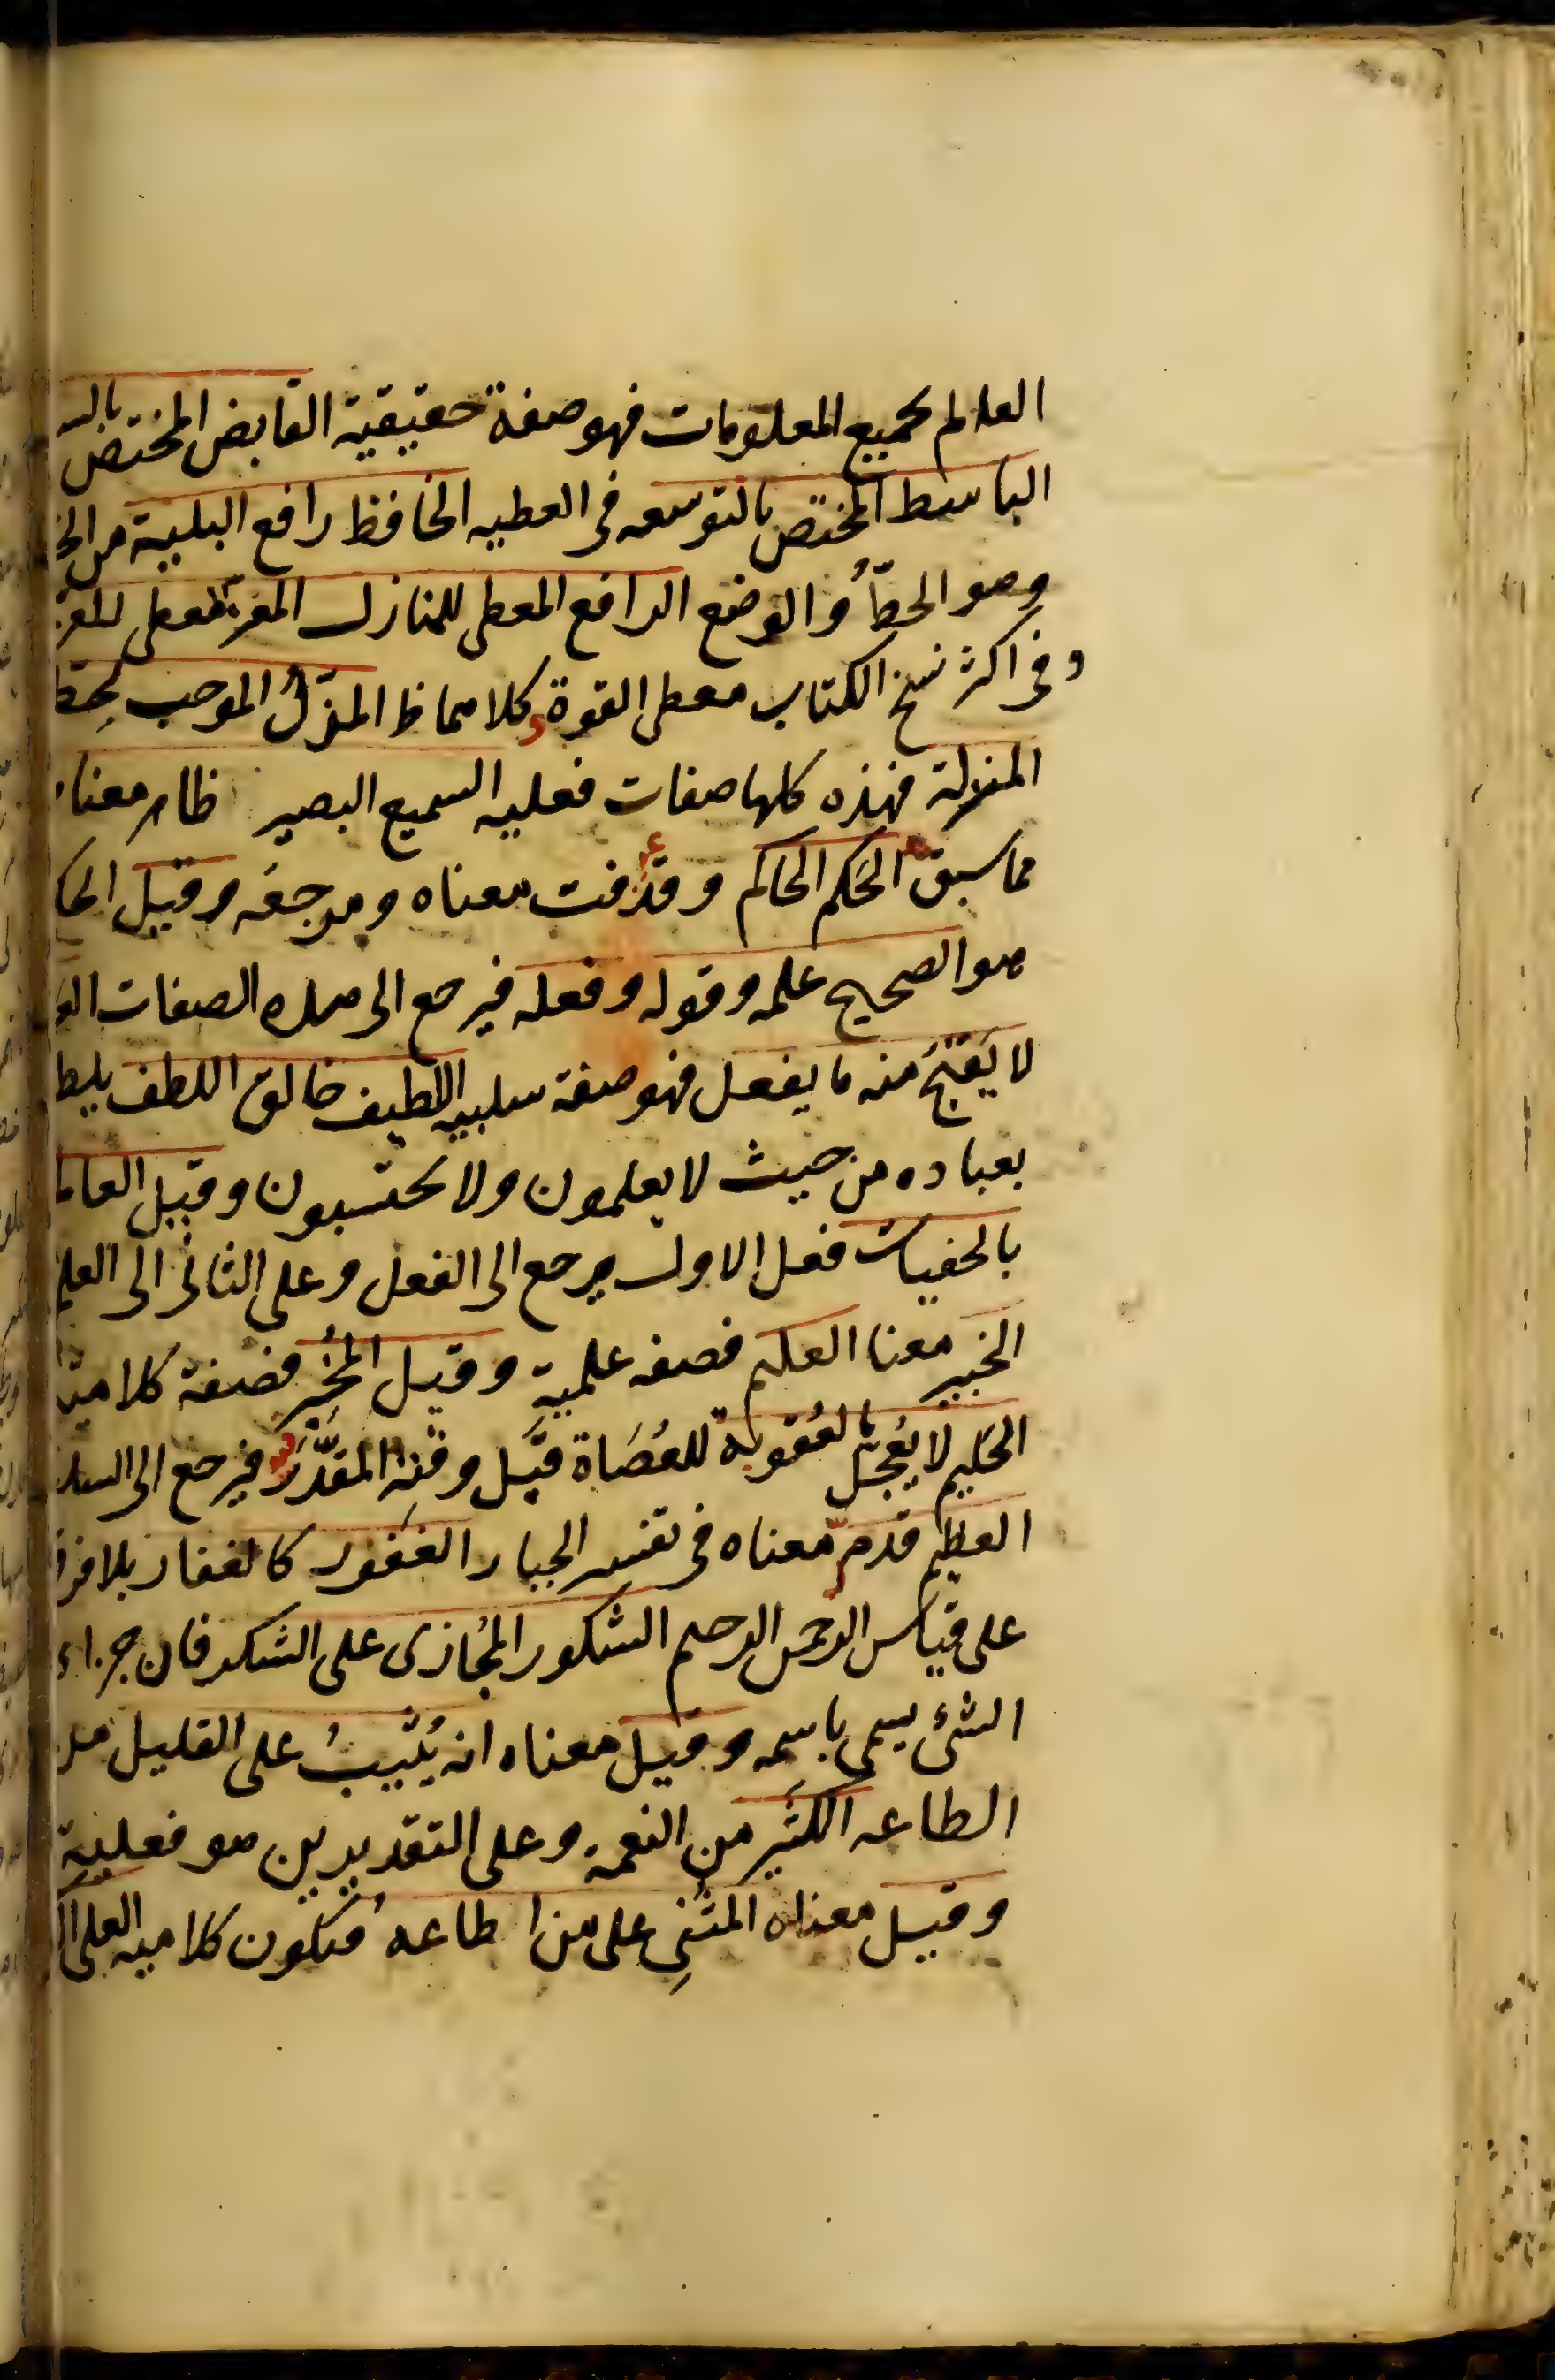 العالم بجميع المعلومات فهو صفة حقيقية القابض المختص بالسـ
الباسط المختص بالتوسعه فى العطيه الخافظ رافع البلية من الخـ
وهو الحطّ والوضع الرافع المعطى للمنازل المعز المعطى للعز
وفى اكثر نسخ الكتاب معطى القوة وكلاهما ظ المذلّ الموجب لحط
المنزلة فهذه كلها صفات فعليه السميع البصير ظاهر معنا
مما سبق الحَكم الحاكم وقد عرفت معناه ومرجعه وقيل الحا
هو الصحيح علمه وقوله وفعله فيرجع الى هذه الصفات العـ
لا يَقبُحُ منه ما يفعل فهو صفة سلبيه اللطيف خالق اللطف يلط
بعباده من حيث لا يعلمون ولا يحتسبون وقيل العالم
بالخفيات فعلى الاول يرجع الى الفعل وعلى الثانى الى العلم
الخبير معنا العليم فصفه علمية وقيل المخبر فصفة كلامية
الحليم لا يُعجّل بالعُقوبة للعُصَاة قبل وقته المقدّر فيرجع الى السلب
العظيم قد مرّ معناه فى تفسير الجبار الغفور كالغفار بلا فرق
على قياس الرحمن الرحيم الشكور المُجازى على الشكر فان جزاء
الشئ يسمى باسمه وقيل معناه انه يُثيبُ على القليل من
الطاعه الكثير من النعمة وعلى التقديرين هو فعلية
وقيل معناه المثنِى على من اطاعه فتكون كلاميه العلى ا